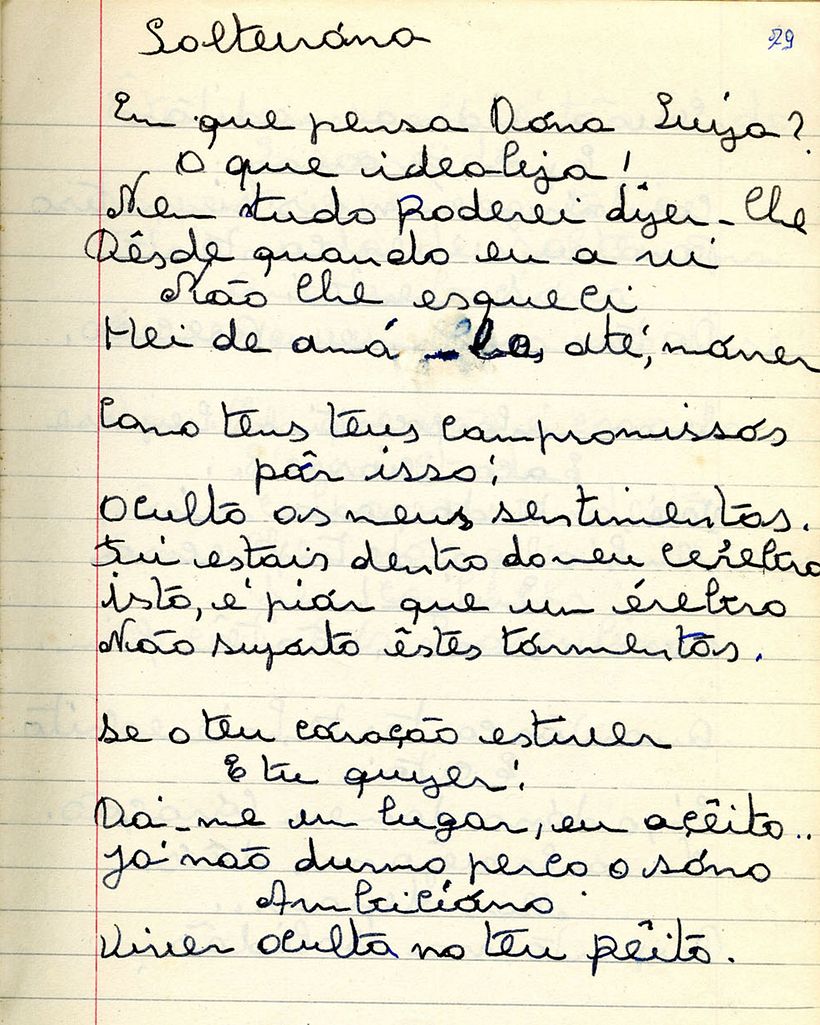 Solteiróna
29
Em que pensa Dóna Luiza?
O que idealiza!
Nem tudo poderei dizer-lhe
Dêsde quando eu a vi
Não lhe esqueci
Hei de amá-la, até, mórrer
Cómo tens teus compromissós
pôr isso!
Oculto os meus sentimentos.
Tui estais dentro do meu cerêbro
istó, é piór que um érebro
Não supórto êstes tórmentós.
Se o teu córação estiver
E tu quizer!
Dá-me um lugar, eu açêito..
Já não durmo perco o sóno
Ambicióno
Viver oculta no teu pêito.